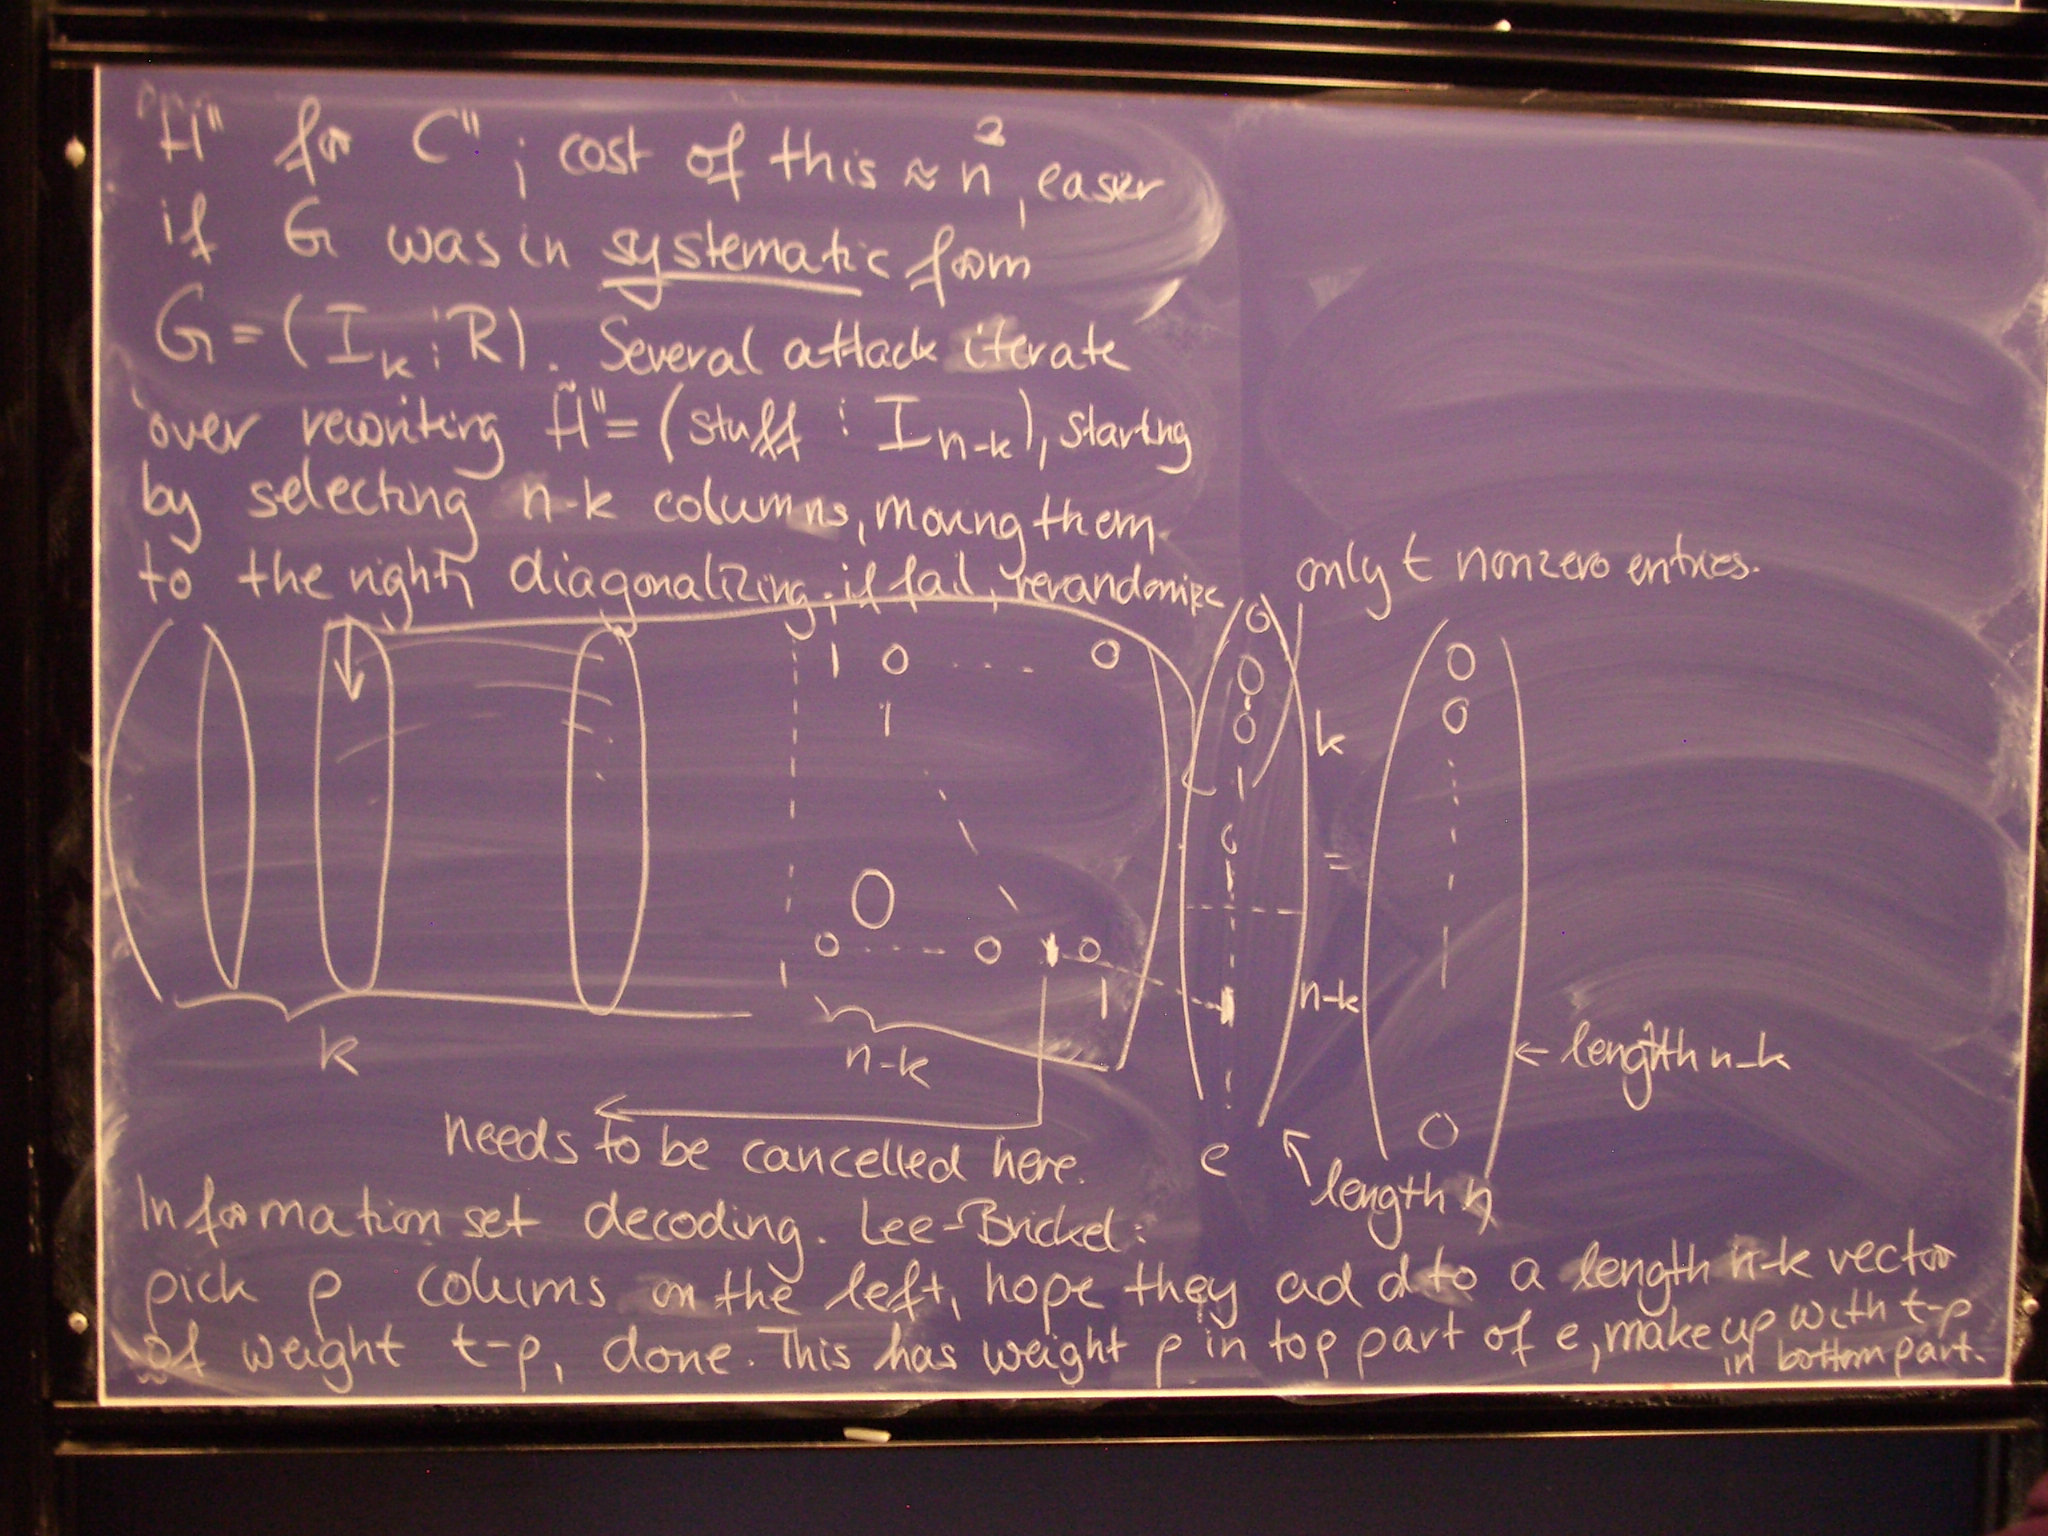 H̃" for C"; cost of this ≈ n², easier
if G was in systematic form
G = (I_k ⋮ R). Several attack iterate
over rewriting H̃" = (stuff ⋮ I_{n-k}), starting
by selecting n-k columns, moving them
to the right, diagonalizing; if fail, rerandomize
only t nonzero entries.
1 0 .... 0
1
0
0 ... 0 1 0
1
k
n-k
0
0
0
k
n-k
=
0
0
0
← length n-k
needs to be cancelled here.
e
length n
Information set decoding. Lee-Brickel:
pick p colums on the left, hope they add to a length n-k vector
of weight t-p, done. This has weight p in top part of e, make up with t-p
in bottom part.